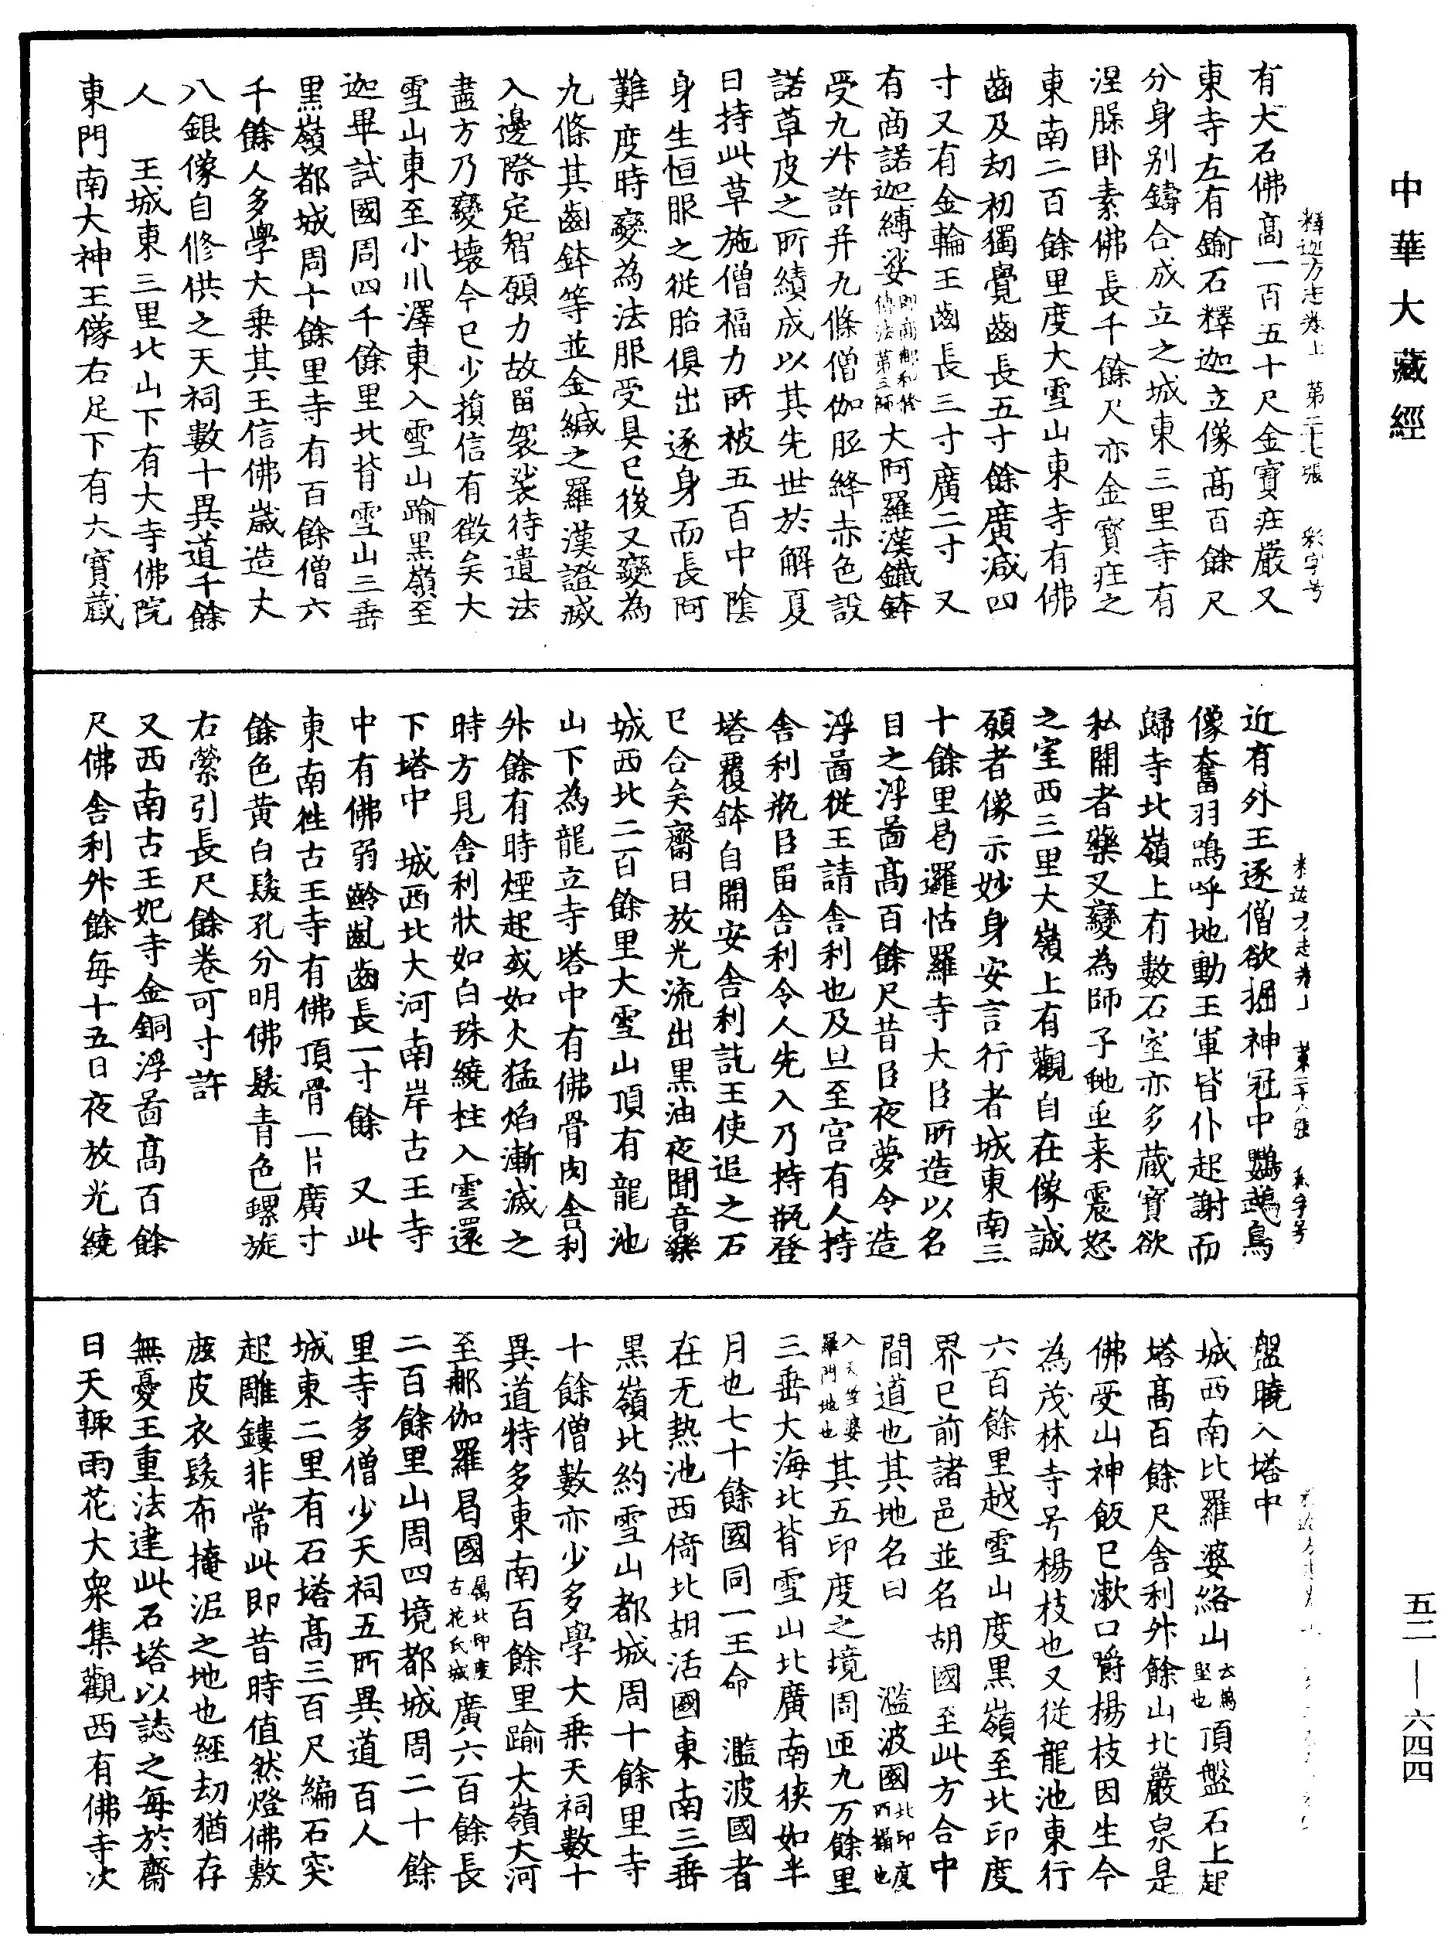 中華大藏經
釋迦方志卷上　第二十七張　彩字号
有大石佛髙一百五十尺金寶㽵嚴又
東寺左有鍮石釋迦立像髙百餘尺
分身别鑄合成立之城東三里寺有
涅膒卧素佛長千餘尺亦金寶㽵之
東南二百餘里度大雪山東寺有佛
齒及劫初獨覺齒長五寸餘廣減四
寸又有金輪王齒長三寸廣二寸　又
有商諾迦縛娑即商那和修傳法第三師大阿羅漢鐵鉢
受九升許并九條僧伽胝絳赤色設
諾草皮之所績成以其先世於解夏
日持此草施僧福力所被五百中陰
身生恒服之從胎俱出逐身而長阿
難度時變為法服受具已後又變為
九條其齒鉢等並金緘之羅漢證滅
入邊際定智願力故留袈裟待遺法
盡方乃變壞今已少損信有徵矣大
雪山東至小川澤東入雪山踰黑嶺至
迦畢試國周四千餘里北背雪山三垂
黑嶺都城周十餘里寺有百餘僧六
千餘人多學大乗其王信佛歲造丈
八銀像自修供之天祠數十異道千餘
人　王城東三里北山下有大寺佛院
東門南大神王像右足下有大寶藏
近有外王逐僧欲掘神冠中鸚鵡鳥
像奮羽鳴呼地動王軍皆仆起謝而
歸寺北嶺上有數石室亦多藏寶欲
私開者藥叉變為師子虵虫来震怒
之室西三里大嶺上有觀自在像誠
願者像示妙身安言行者城東南三
十餘里曷邏怙羅寺大臣所造以名
目之浮啚髙百餘尺昔臣夜夢令造
浮啚從王請舍利也及旦至宫有人持
舍利瓶臣留舍利令人先入乃持瓶登
塔覆鉢自開安舍利訖王使追之石
已合矣齋日放光流出黑油夜聞音樂
城西北二百餘里大雪山頂有龍池
山下為龍立寺塔中有佛骨肉舍利
升餘有時煙起或如火猛焰漸滅之
時方見舍利狀如白珠繞柱入雲還
下塔中　城西北大河南岸古王寺
中有佛弱齡齓齒長一寸餘　又此
東南徃古王寺有佛頂骨一片廣寸
餘色黄白髮孔分明佛髮青色螺旋
右縈引長尺餘卷可寸許
又西南古王妃寺金銅浮啚髙百餘
尺佛舍利升餘每十五日夜放光繞
盤曉入塔中
城西南比羅婆絡山云萬堅也頂盤石上起
塔髙百餘尺舍利升餘山北巖泉是
佛受山神飯已漱口嚼楊枝因生今
為茂林寺号楊枝也又從龍池東行
六百餘里越雪山度黑嶺至北印度
界已前諸邑並名胡國至此方合中
間道也其地名曰　　濫波國北印度所攝也
入天竺婆羅門地也其五印度之境周匝九万餘里
三垂大海北背雪山北廣南狹如半
月也七十餘國同一王命　濫波國者
在无熱池西倚北胡活國東南三垂
黑嶺北約雪山都城周十餘里寺
十餘僧數亦少多學大乗天祠數十
異道特多東南百餘里踰大嶺大河
至那伽羅曷國屬北印度古花氏城廣六百餘長
二百餘里山周四境都城周二十餘
里寺多僧少天祠五所異道百人
城東二里有石塔髙三百尺編石突
起雕鏤非常此即昔時值然燈佛敷
鹿皮衣髮布掩泥之地也經劫猶存
無憂王重法建此石塔以誌之每於齋
日天輙雨花大衆集觀西有佛寺次
五二—六四四